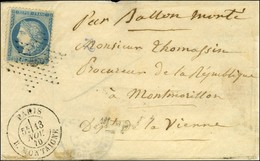 Par Ballon monté
Monsieur Thomassin
Procureur de la République
à Montmorillon
Dépt de la Vienne
PARIS
13
NOV.
70
R. MONTAIGNE